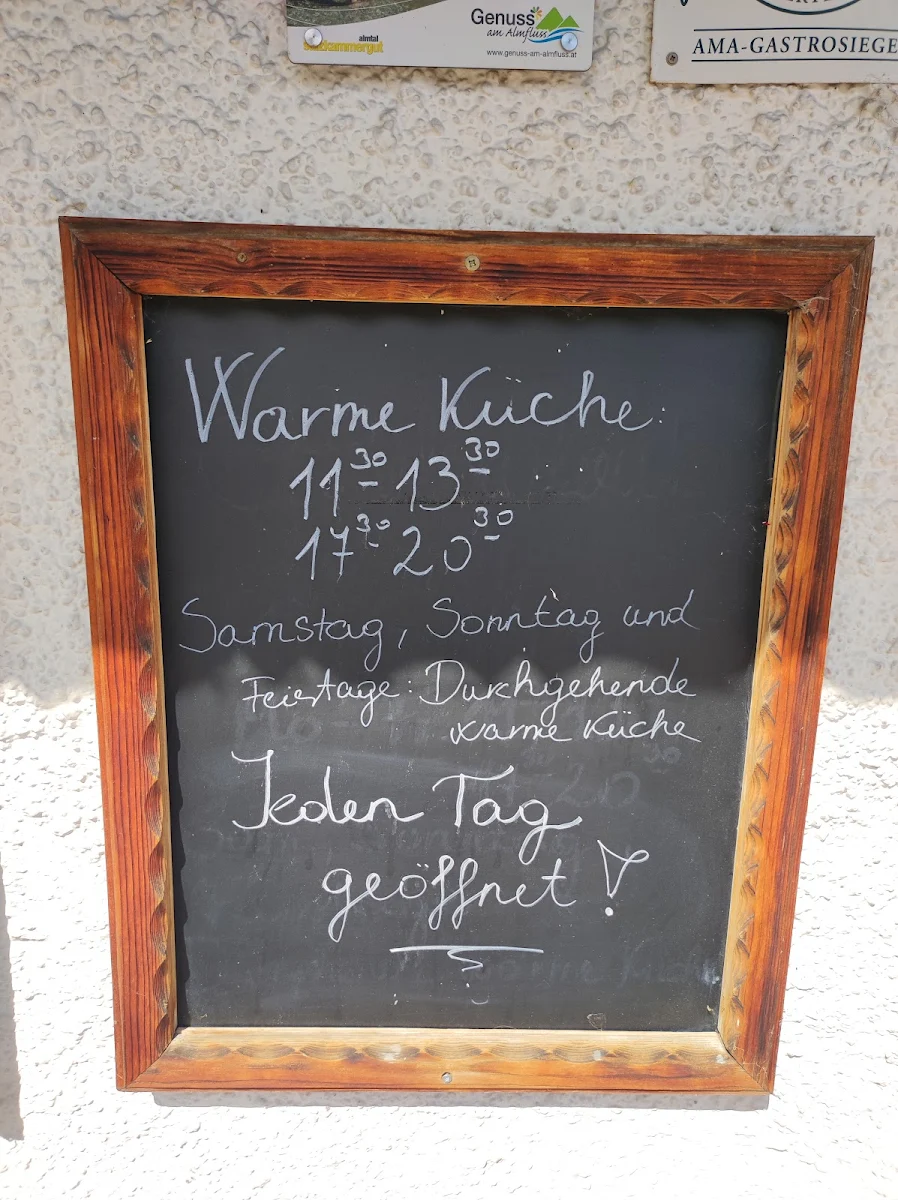 Genuss
am Almfluss
almtal
salzkammergut
www.genuss-am-almfluss.at
AMA-GASTROSIEGE
Warme Küche:
11³⁰ 13³⁰
17³⁰ 20³⁰
Samstag, Sonntag und
Feiertage: Durchgehende
warme Küche
Jeden Tag
geöffnet!